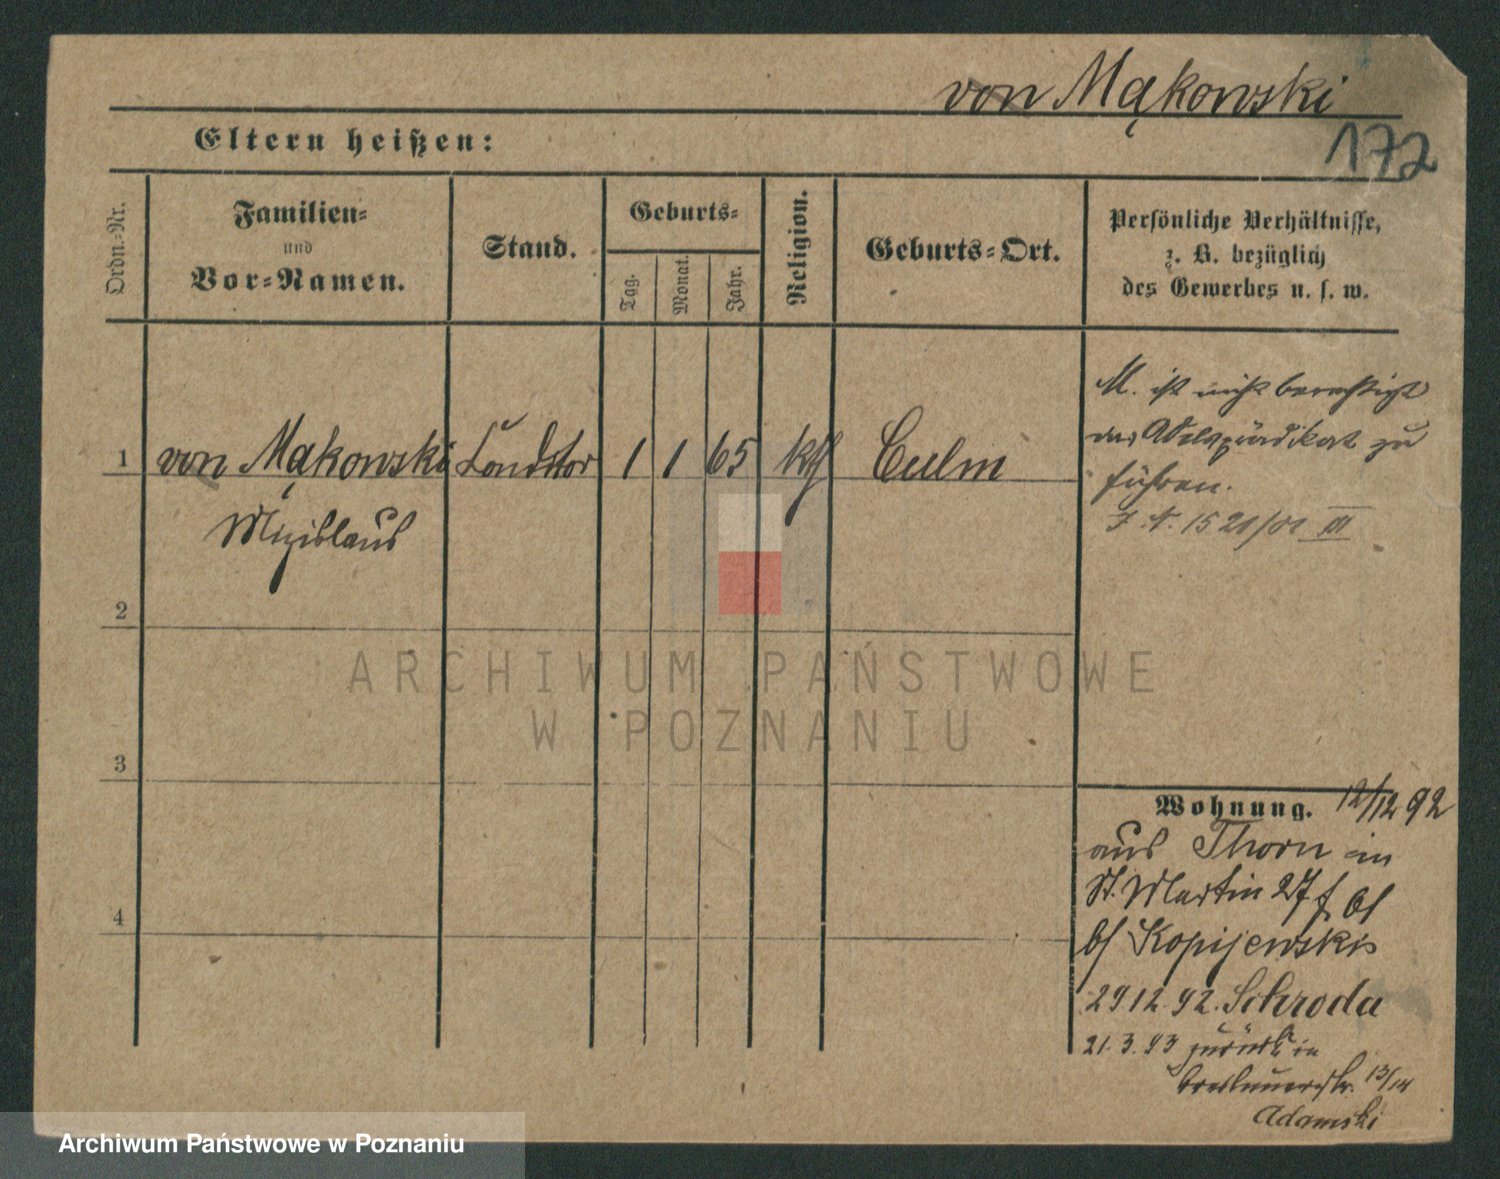 von Mąkowski
172
Eltern heißen:
Ordn.-Nr.
Familien-
und
Vor-Namen.
Stand.
Geburts-
Tag.
Monat.
Jahr.
Religion.
Geburts-Ort.
Persönliche Verhältnisse,
z. B. bezüglich
des Gewerbes u. s. w.
1 von Mąkowski 1 1 65 kth Culm
Mizislaus
M. ist nicht berechtigt
das Adelsprädikat zu
führen.
J. N. 1520/01 III
2
3
4
ARCHIWUM PAŃSTWOWE
W POZNANIU
Wohnung. 12/12 92
aus Thorn in
St. Martin 27 f
b/ Kopijewski
29.12.92. Schroda
21.3.93 zurück in
Breslauerstr. 13/14
Adamski
Archiwum Państwowe w Poznaniu